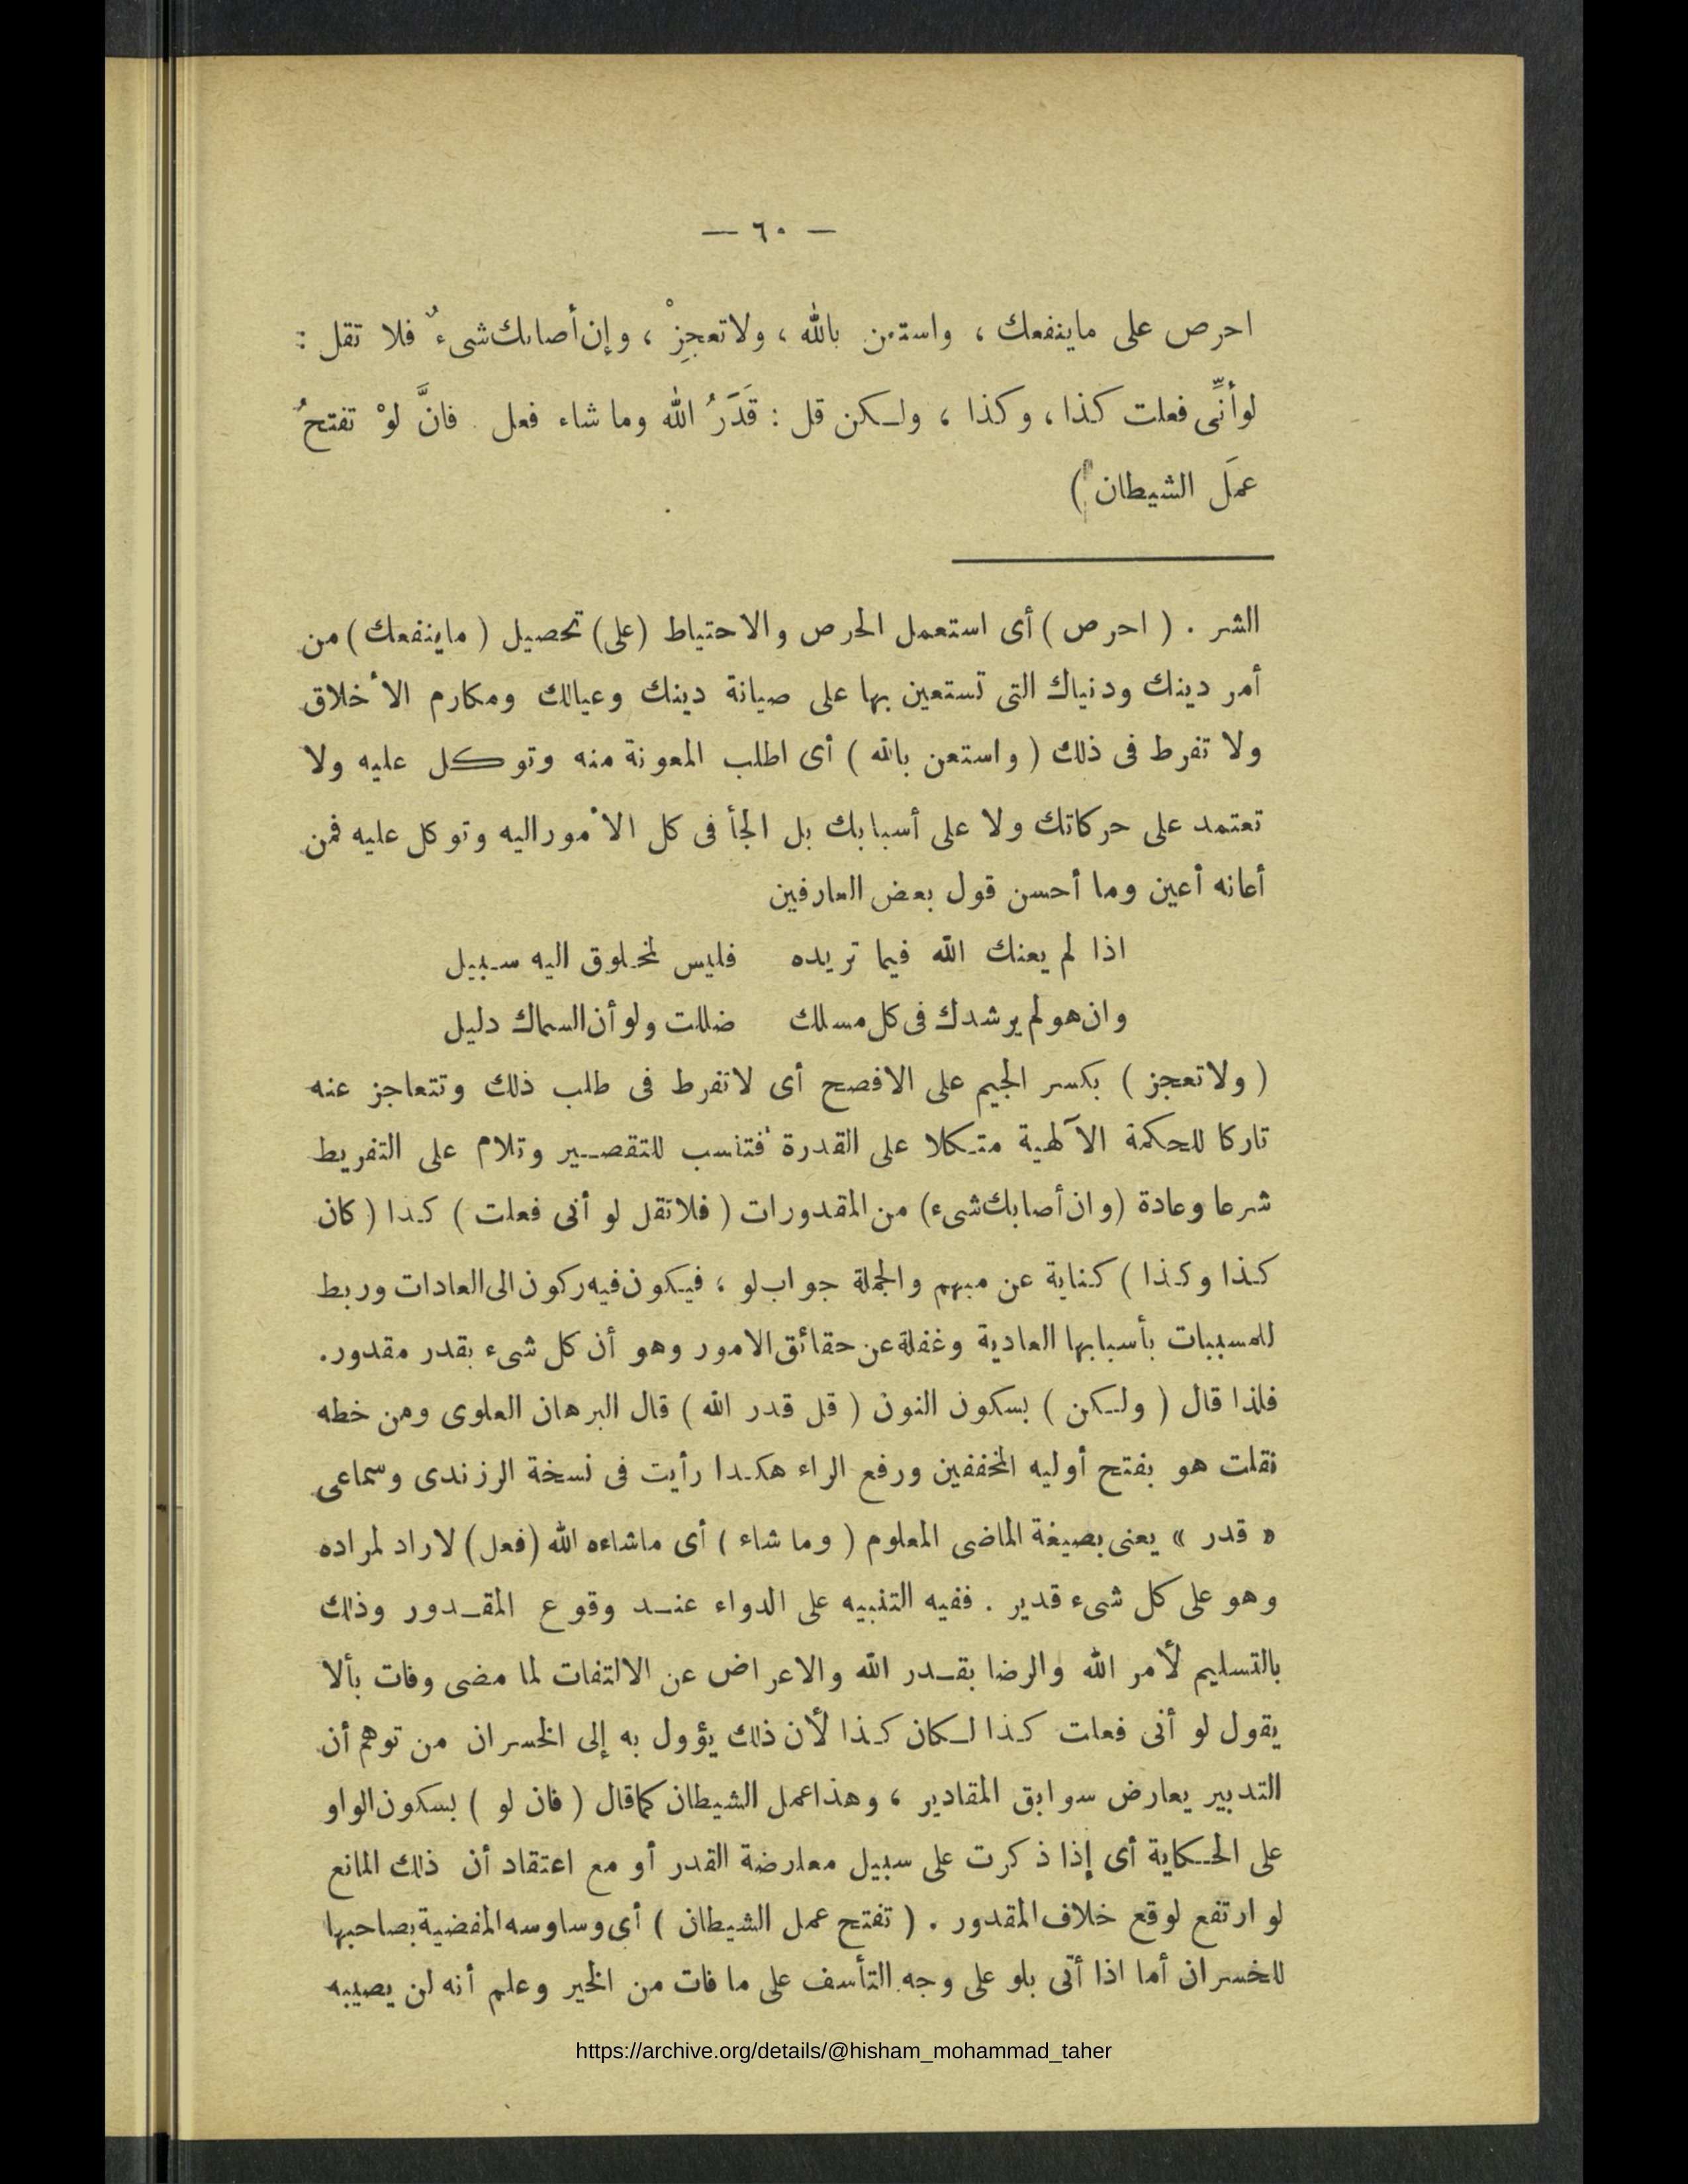 — ٦٠ —
احرص على ماينفعك ، واستعن بالله ، ولاتعجِزْ ، وإن أصابك شىءٌ فلا تقل :
لوأنِّى فعلت كذا ، وكذا ، ولكن قل : قَدَرُ الله وما شاء فعل . فانَّ لوْ تفتحُ
عمَلَ الشيطان )
الشر . ( احرص ) أى استعمل الحرص والاحتياط (على) تحصيل ( ماينفعك ) من
أمر دينك ودنياك التى تستعين بها على صيانة دينك وعيالك ومكارم الأخلاق
ولا تفرط فى ذلك ( واستعن بالله ) أى اطلب المعونة منه وتوكل عليه ولا
تعتمد على حركاتك ولا على أسبابك بل الجأ فى كل الأموراليه وتوكل عليه فمن
أعانه أعين وما أحسن قول بعض العارفين
اذا لم يعنك الله فيما تريده فليس لمخلوق اليه سبيل
وان هو لم يرشدك فى كل مسلك ضللت ولو أن السماك دليل
( ولاتعجز ) بكسر الجيم على الافصح أى لاتفرط فى طلب ذلك وتتعاجز عنه
تاركا للحكمة الآلهية متكلا على القدرة فتنسب للتقصير وتلام على التفريط
شرعا وعادة (وان أصابك شىء) من المقدورات ( فلاتقل لو أنى فعلت ) كذا ( كان
كذا وكذا ) كناية عن مبهم والجملة جواب لو ، فيكون فيه ركون الى العادات وربط
للمسببات بأسبابها العادية وغفلة عن حقائق الامور وهو أن كل شىء بقدر مقدور.
فلذا قال ( ولكن ) بسكون النون ( قل قدر الله ) قال البرهان العلوى ومن خطه
نقلت هو بفتح أوليه المخففين ورفع الراء هكذا رأيت فى نسخة الرزندى وسماعى
« قدر » يعنى بصيغة الماضى المعلوم ( وما شاء ) أى ماشاءه الله (فعل) لاراد لمراده
وهو على كل شىء قدير . ففيه التنبيه على الدواء عند وقوع المقدور وذلك
بالتسليم لأمر الله والرضا بقدر الله والاعراض عن الالتفات لما مضى وفات بألا
يقول لو أنى فعلت كذا لكان كذا لأن ذلك يؤول به إلى الخسران من توهم أن
التدبير يعارض سوابق المقادير ، وهذاعمل الشيطان كماقال ( فان لو ) بسكون الواو
على الحكاية أى إذا ذكرت على سبيل معارضة القدر أو مع اعتقاد أن ذلك المانع
لو ارتفع لوقع خلاف المقدور . ( تفتح عمل الشيطان ) أى وساوسه المفضية بصاحبها
للخسران أما اذا أتى بلو على وجه التأسف على ما فات من الخير وعلم أنه لن يصيبه
https://archive.org/details/@hisham_mohammad_taher